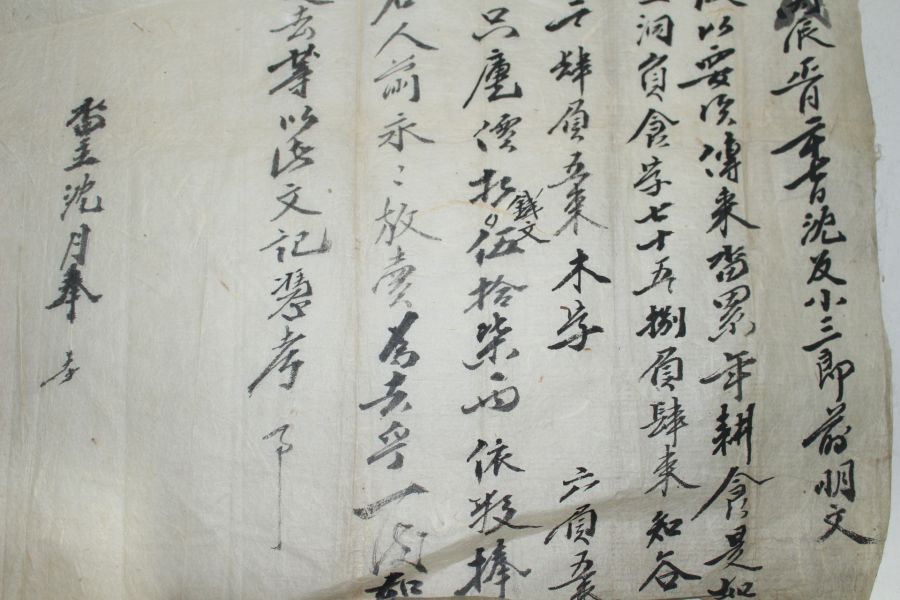 辰正月二十七日沈友小三郎前明文
以要用傳來畓累年耕食是如
洞員食字七十五捌負肆束 知谷
二肆負五束 木字 六負五束
只廛價折錢文伍拾柒兩依數捧
名人前永〻放賣為去乎 一後如
去等以此文記憑考事
畓主沈月奉